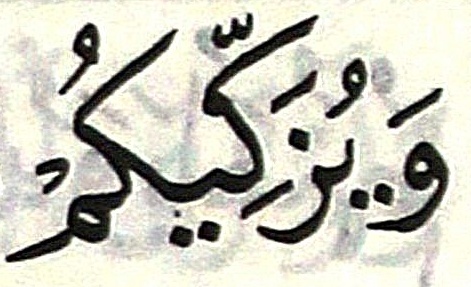 وَيُزَكِّيكُمْ